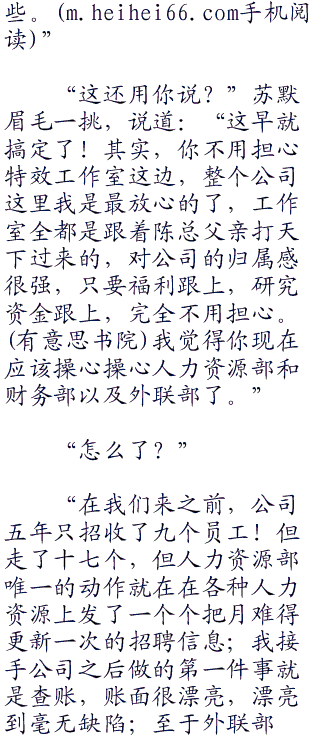 些。(m.heihei66.com手机阅
读)”
“这还用你说？”苏默
眉毛一挑，说道：“这早就
搞定了！其实，你不用担心
特效工作室这边，整个公司
这里我是最放心的了，工作
室全都是跟着陈总父亲打天
下过来的，对公司的归属感
很强，只要福利跟上，研究
资金跟上，完全不用担心。
(有意思书院)我觉得你现在
应该操心操心人力资源部和
财务部以及外联部了。”
“怎么了？”
“在我们来之前，公司
五年只招收了九个员工！但
走了十七个，但人力资源部
唯一的动作就在在各种人力
资源上发了一个个把月难得
更新一次的招聘信息；我接
手公司之后做的第一件事就
是查账，账面很漂亮，漂亮
到毫无缺陷；至于外联部